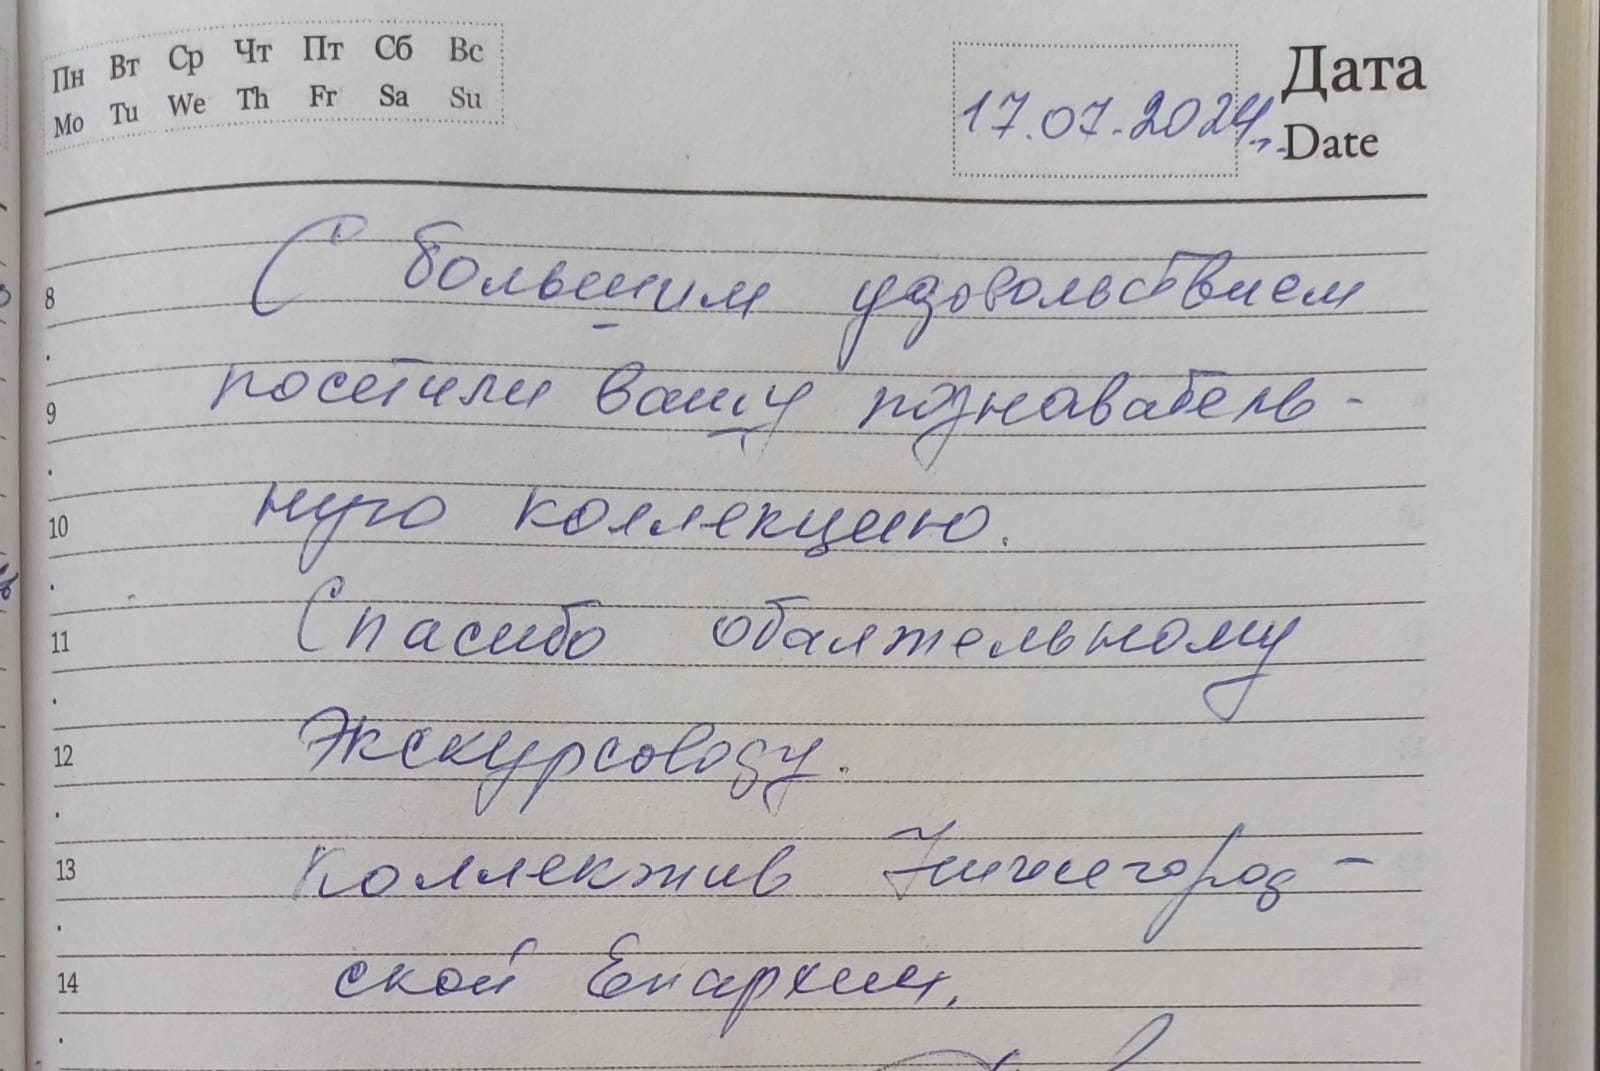 Пн Вт Ср Чт Пт Сб Вс
Mo Tu We Th Fr Sa Su
17.07.2024г. Дата
Date
8 С большим удовольствием
9 посетили вашу познаватель-
10 ную коллекцию.
11 Спасибо обаятельному
12 Экскурсоводу.
13 Коллектив Нижегород-
14 ской Епархии.